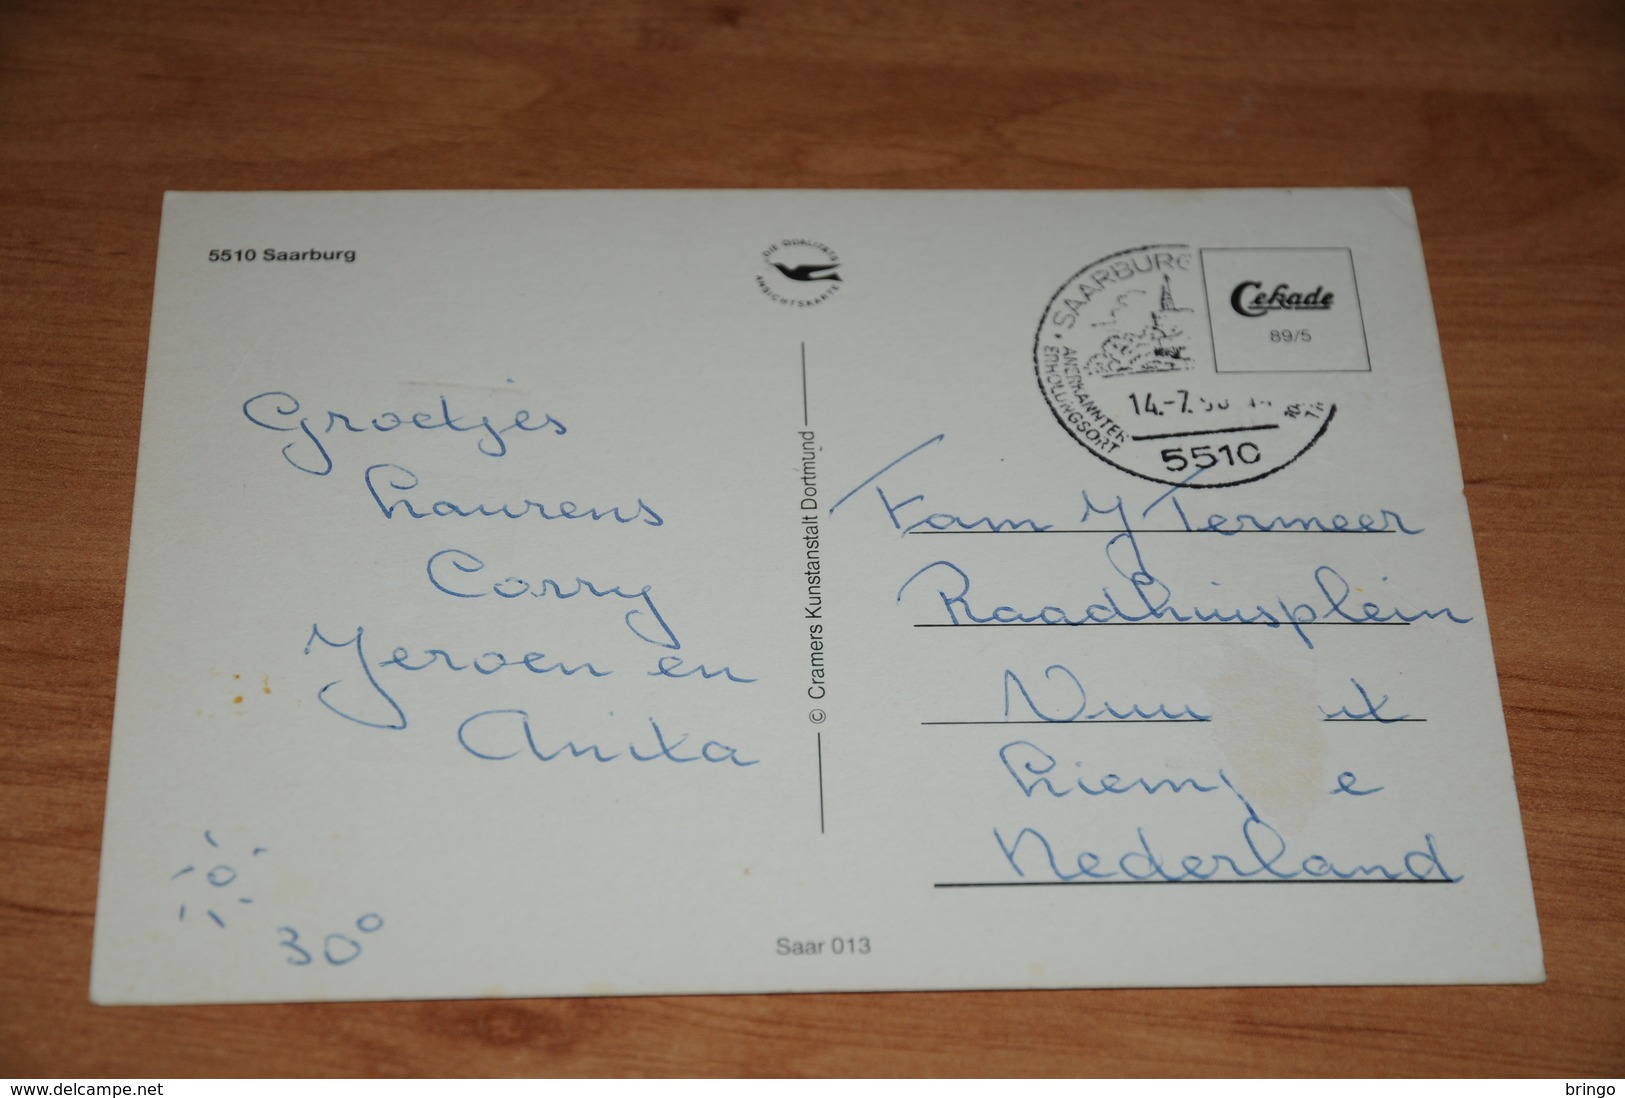 5510 Saarburg
DIE QUALITÄTS
ANSICHTSKARTE
SAARBURG
ANERKANNTER
ERHOLUNGSORT
14.-7.
5510
Cekade
89/5
Groetjes
Laurens
Corry
Jeroen en
Anita
30°
© Cramers Kunstanstalt Dortmund
Fam J Termeer
Raadhuisplein
Nederland
Saar 013
www.delcampe.net
bringo